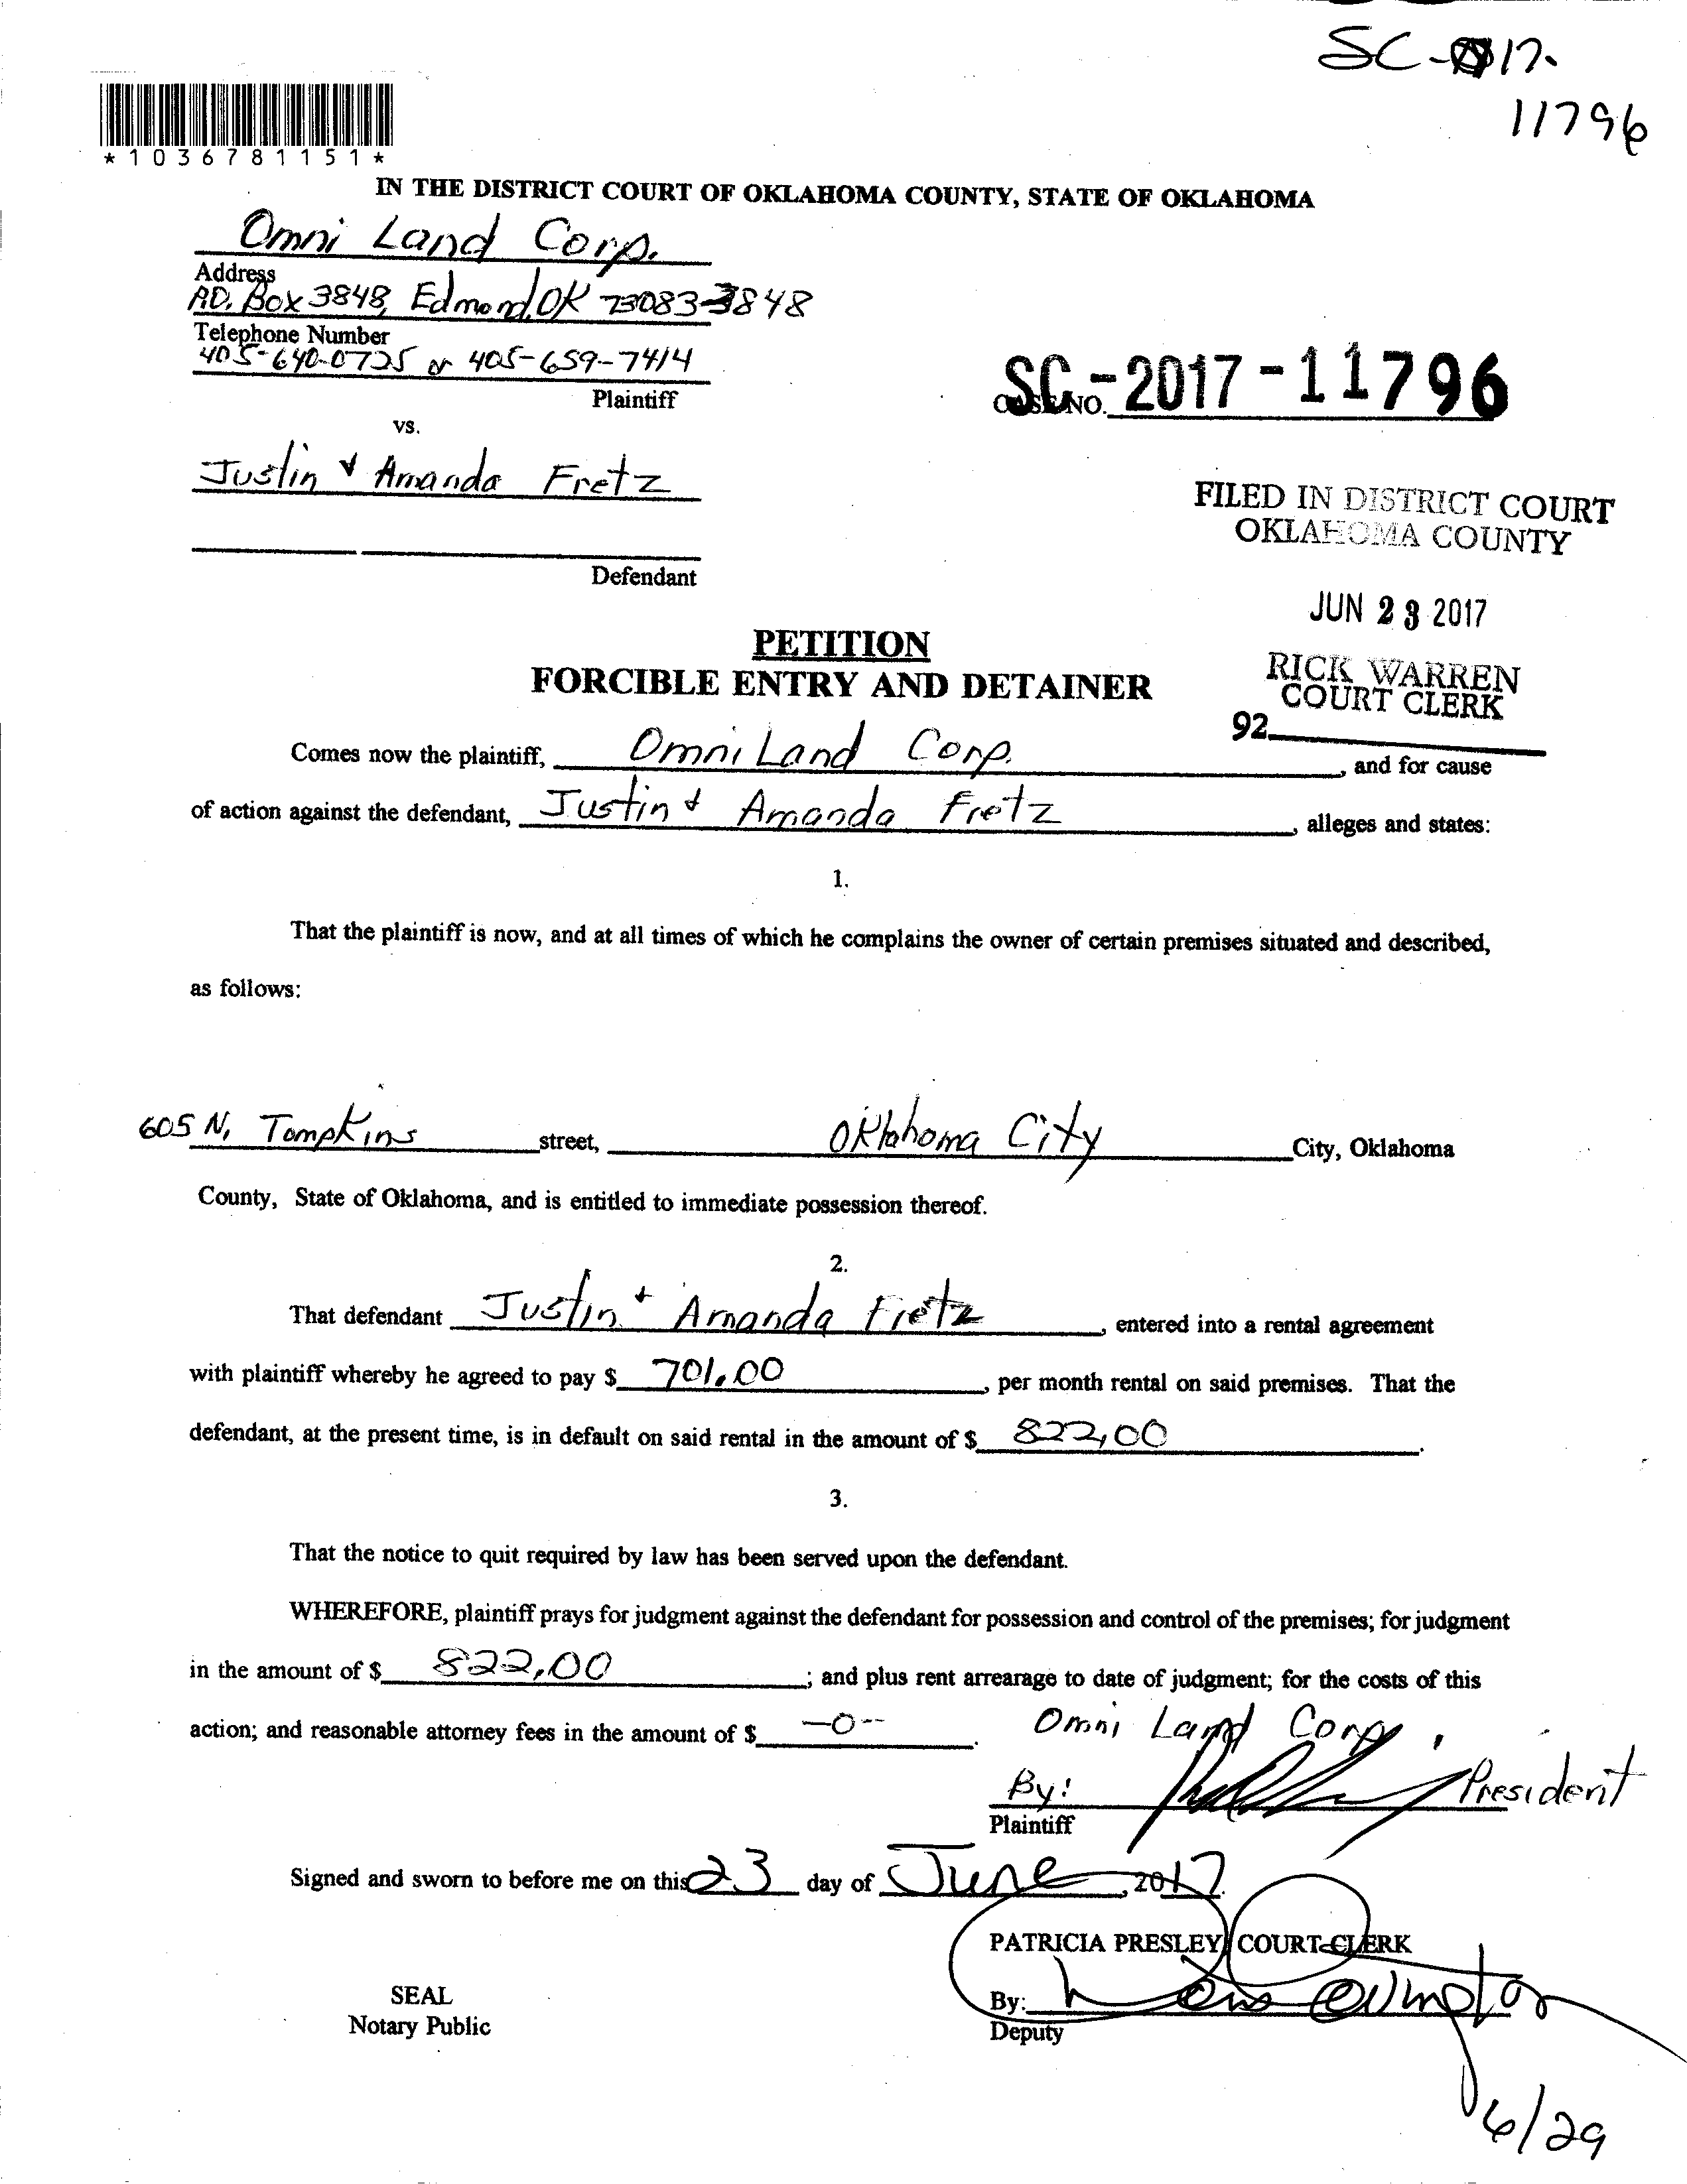 SC-17-
11796
*1036781151*
IN THE DISTRICT COURT OF OKLAHOMA COUNTY, STATE OF OKLAHOMA
Omni Land Corp.
Address
P.O. Box 3848, Edmond, OK 73083-3848
Telephone Number
405-640-0725 or 405-659-7414
Plaintiff
CASE NO. SC-2017-11796
vs.
Justin & Amanda Fretz
Defendant
FILED IN DISTRICT COURT
OKLAHOMA COUNTY
JUN 23 2017
RICK WARREN
COURT CLERK
92
PETITION
FORCIBLE ENTRY AND DETAINER
Comes now the plaintiff, Omni Land Corp. , and for cause
of action against the defendant, Justin & Amanda Fretz , alleges and states:
1.
That the plaintiff is now, and at all times of which he complains the owner of certain premises situated and described,
as follows:
605 N. Tompkins street, Oklahoma City City, Oklahoma
County, State of Oklahoma, and is entitled to immediate possession thereof.
2.
That defendant Justin & Amanda Fretz , entered into a rental agreement
with plaintiff whereby he agreed to pay $ 701.00 , per month rental on said premises. That the
defendant, at the present time, is in default on said rental in the amount of $ 822,00 .
3.
That the notice to quit required by law has been served upon the defendant.
WHEREFORE, plaintiff prays for judgment against the defendant for possession and control of the premises; for judgment
in the amount of $ 822,00 ; and plus rent arrearage to date of judgment; for the costs of this
action; and reasonable attorney fees in the amount of $ -0-- .
Omni Land Corp.
By: , President
Plaintiff
Signed and sworn to before me on this 23 day of June , 2017.
PATRICIA PRESLEY, COURT CLERK
SEAL
Notary Public
By:
Deputy
6/29